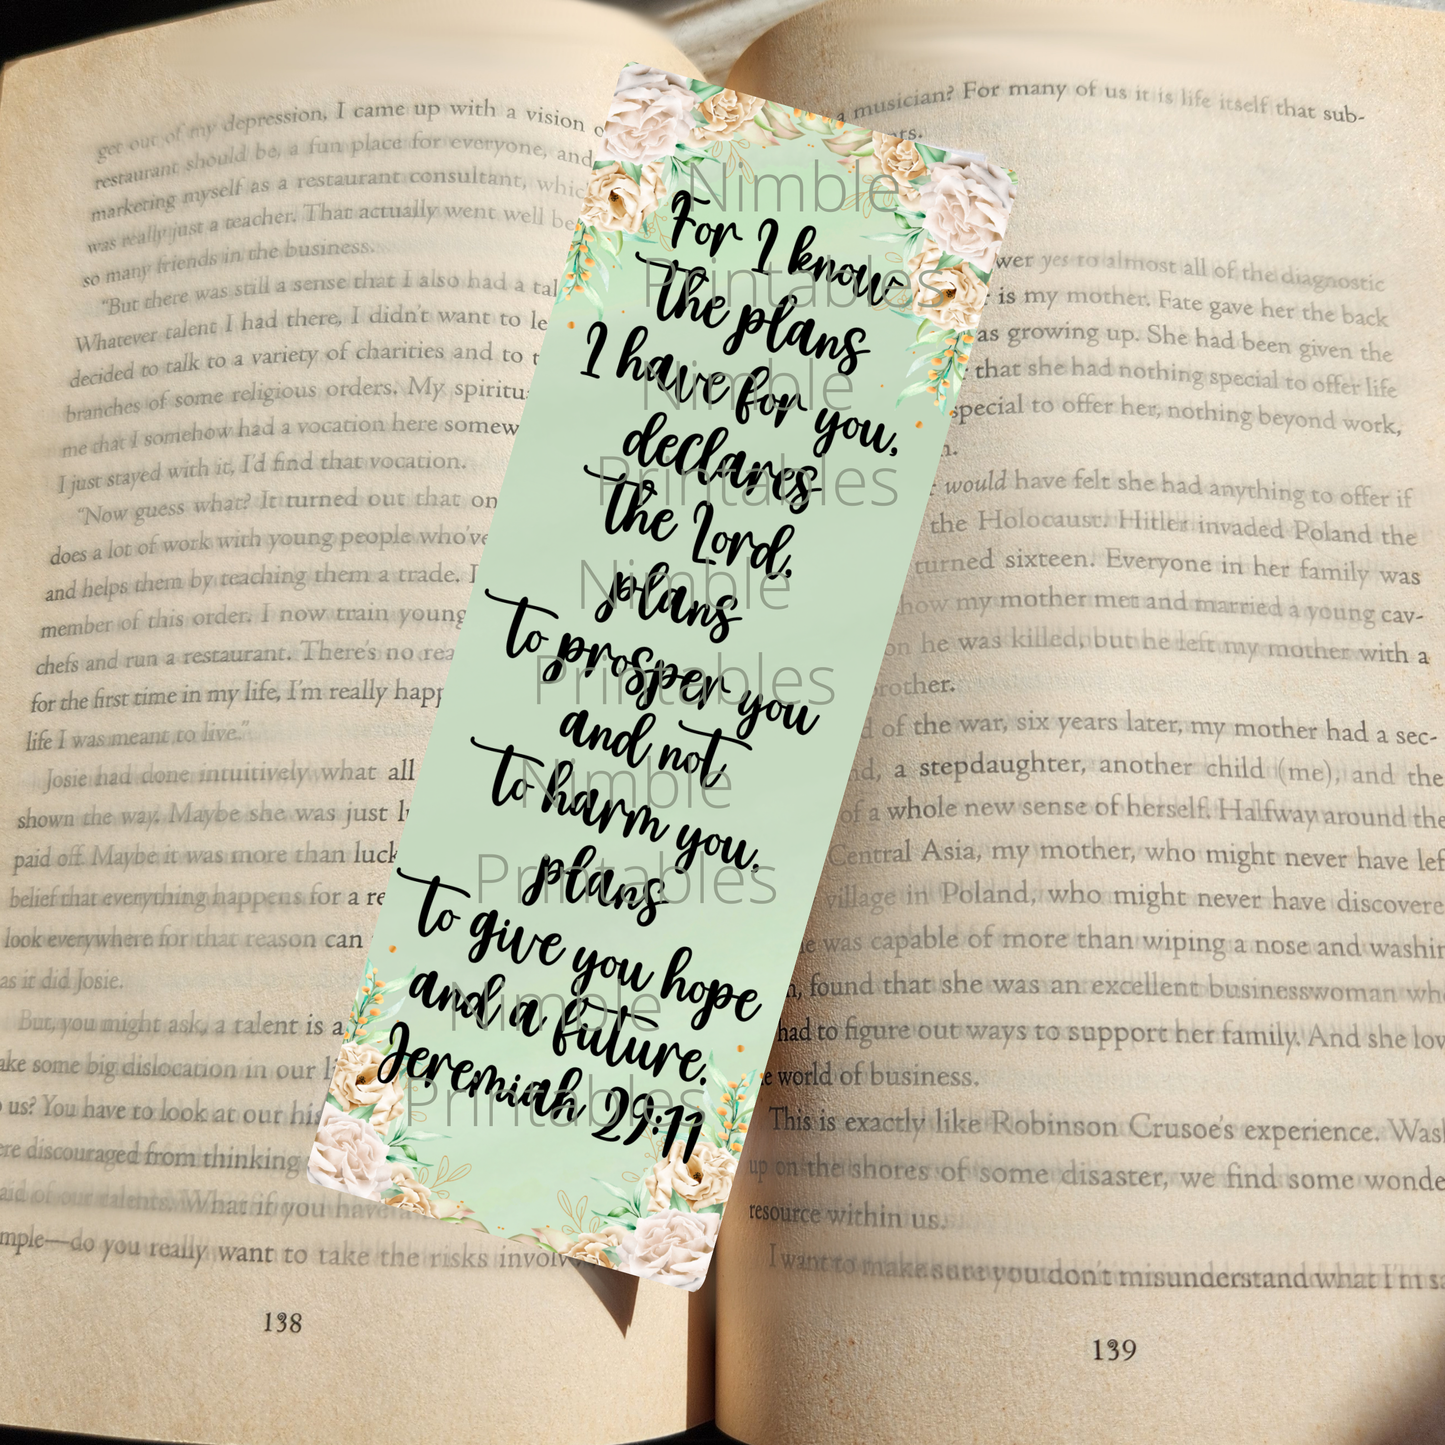 get out of my depression, I came up with a vision
restaurant should be, a fun place for everyone, and
marketing myself as a restaurant consultant, whic
was really just a teacher. That actually went well be
so many friends in the business.
"But there was still a sense that I also had a tal
Whatever talent I had there, I didn't want to le
decided to talk to a variety of charities and to t
branches of some religious orders. My spiritu
me that I somehow had a vocation here somew
I just stayed with it, I'd find that vocation.
"Now guess what? It turned out that on
does a lot of work with young people who've
and helps them by teaching them a trade. I
member of this order. I now train young
chefs and run a restaurant. There's no rea
for the first time in my life, I'm really happ
life I was meant to live."
Josie had done intuitively what all
shown the way. Maybe she was just l
paid off. Maybe it was more than luck
belief that everything happens for a re
look everywhere for that reason can
as it did Josie.
But, you might ask, a talent is a
ake some big dislocation in our l
us? You have to look at our his
ere discouraged from thinking
aid of our talents. What if you have a
mple—do you really want to take the risks involve
138
For I know
the plans
I have for you,
declares
the Lord,
plans
to prosper you
and not
to harm you,
plans
to give you hope
and a future.
Jeremiah 29:11
Nimble
Printables
Nimble
Printables
Nimble
Printables
Nimble
Printables
Nimble
Printables
a musician? For many of us it is life itself that sub-
ts.
wer yes to almost all of the diagnostic
is my mother. Fate gave her the back
as growing up. She had been given the
that she had nothing special to offer life
special to offer her, nothing beyond work,
n.
would have felt she had anything to offer if
the Holocaust. Hitler invaded Poland the
turned sixteen. Everyone in her family was
how my mother met and married a young cav-
on he was killed, but he left my mother with a
rother.
d of the war, six years later, my mother had a sec-
nd, a stepdaughter, another child (me), and the
of a whole new sense of herself. Halfway around the
Central Asia, my mother, who might never have lef
village in Poland, who might never have discovere
e was capable of more than wiping a nose and washin
n, found that she was an excellent businesswoman wh
had to figure out ways to support her family. And she lov
e world of business.
This is exactly like Robinson Crusoe's experience. Was
up on the shores of some disaster, we find some wonde
resource within us.
I want to make sure you don't misunderstand what I'm sa
139